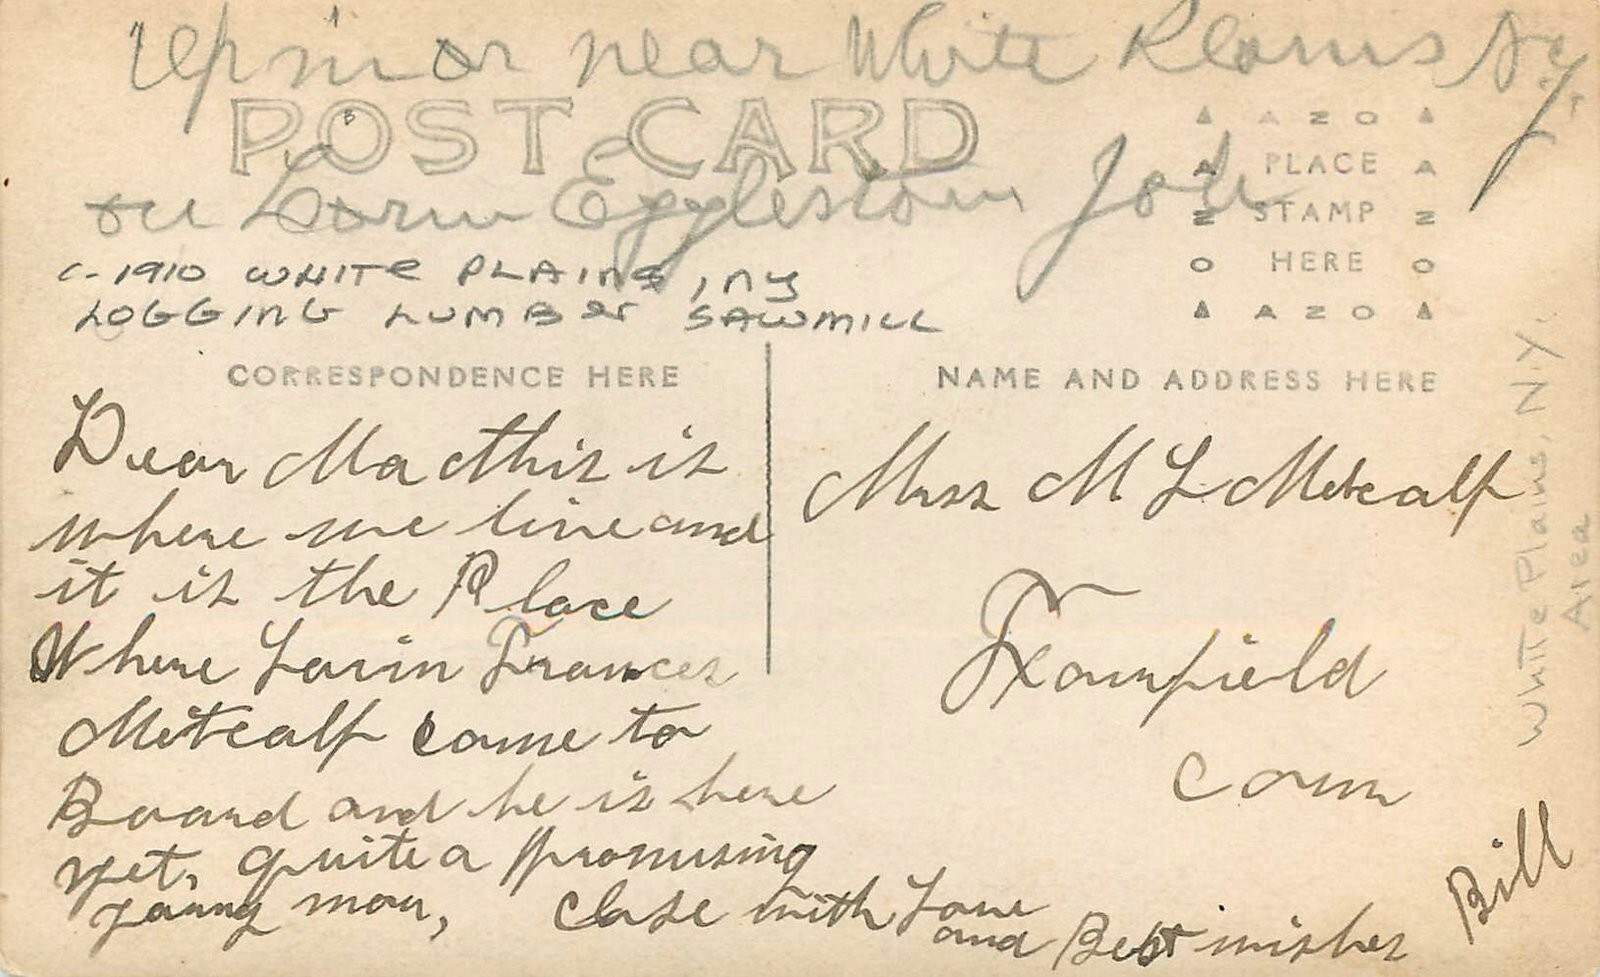 Up in or near White Plains N.Y.
POST CARD
on Lorin Eggleston Job
C-1910 WHITE PLAINS, NY
LOGGING LUMBER SAWMILL
AZO
PLACE
STAMP
HERE
AZO
CORRESPONDENCE HERE
Dear Ma this is
where we live and
it is the Place
Where Lorin Frances
Metcalf Came to
Board and he is here
yet, quite a promising
young man, Close with Love
and Best wishes
Bill
NAME AND ADDRESS HERE
Miss M L Metcalf
Fairfield
Conn
White Plains, N.Y.
Area